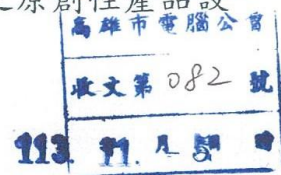 原創性產品設
高雄市電腦公會
收文第082號
113. 11. 月 5